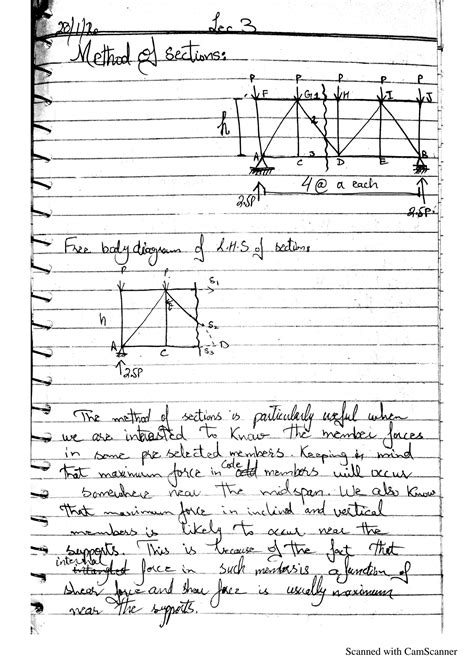 28/1/20
Lec 3
Method of sections:
P P P P P
F G 1 H I J
h 2
A C 3 D E B
4 @ a each
2.5P 2.5P
Free body diagram of L.H.S of section
P P
S1
h
S2
A C S3 D
2.5P
The method of sections is particularly useful when
we are intrested to know the member forces
in some pre selected members. Keeping in mind
that maximum force in code members will occur
somewhere near the midspan. We also know
that maximum force in inclind and vertical
members is likely to occur near the
supports. This is because of the fact that
internal force in such members is a function of
shear force and shear force is usually maximum
near the supports.
Scanned with CamScanner